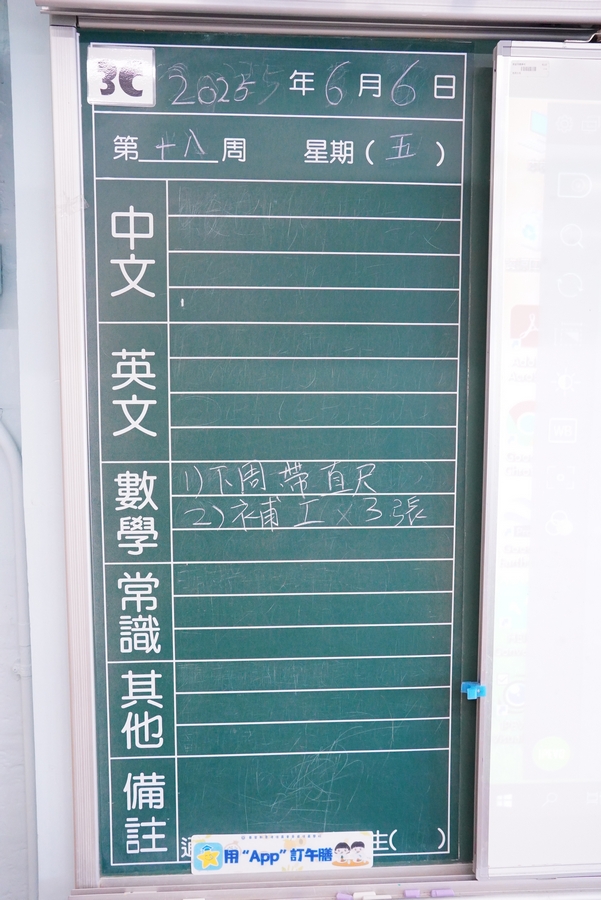 3C
2025年6月6日
第十八周 星期(五)
中文
英文
數學
1)下周帶直尺
2)補工×3張
常識
其他
備註
生( )
用"App"訂午膳